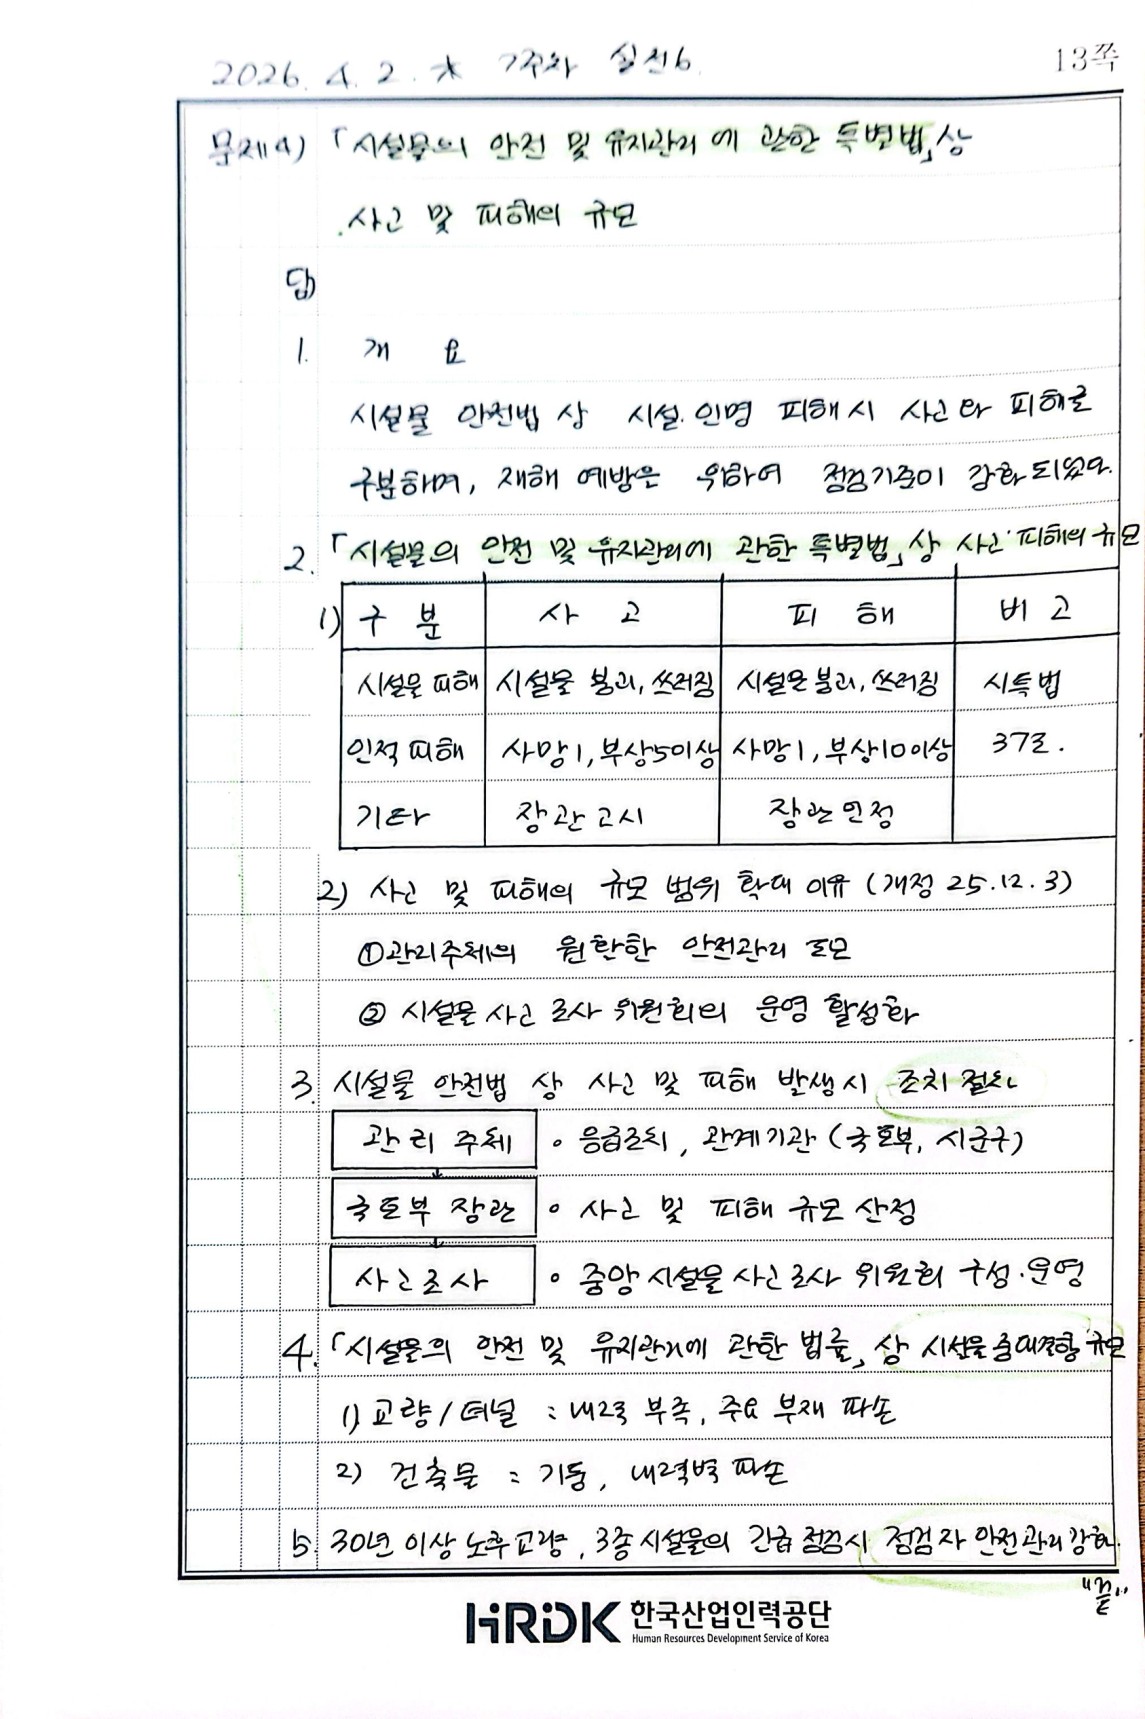 2026. 4. 2. 木 7주차 실전6.
13쪽
문제4) 「시설물의 안전 및 유지관리에 관한 특별법」상
사고 및 피해의 규모
답)
1. 개 요
시설물 안전법 상 시설·인명 피해시 사고와 피해로
구분하며, 재해 예방을 위하여 점검기준이 강화되었다.
2. 「시설물의 안전 및 유지관리에 관한 특별법」상 사고·피해의 규모
1) 구 분 사 고 피 해 비 고
시설물 피해 시설물 붕괴, 쓰러짐 시설물 붕괴, 쓰러짐 시특법
인적 피해 사망1, 부상5이상 사망1, 부상10이상 37조.
기타 장관고시 장관인정
2) 사고 및 피해의 규모 범위 확대 이유 (개정 25.12.3)
① 관리주체의 원활한 안전관리 도모
② 시설물 사고 조사 위원회의 운영 활성화
3. 시설물 안전법 상 사고 및 피해 발생시 조치 절차
관리 주체 ∘ 응급조치, 관계기관 (국토부, 시군구)
국토부 장관 ∘ 사고 및 피해 규모 산정
사고조사 ∘ 중앙시설물 사고조사 위원회 구성·운영
4. 「시설물의 안전 및 유지관리에 관한 법률」상 시설물 중대결함 규모
1) 교량/터널 : 내력 부족, 주요 부재 파손
2) 건축물 : 기둥, 내력벽 파손
5. 30년 이상 노후교량, 3종시설물의 긴급점검시 점검자 안전관리 강화.
"끝"
HRDK 한국산업인력공단
Human Resources Development Service of Korea